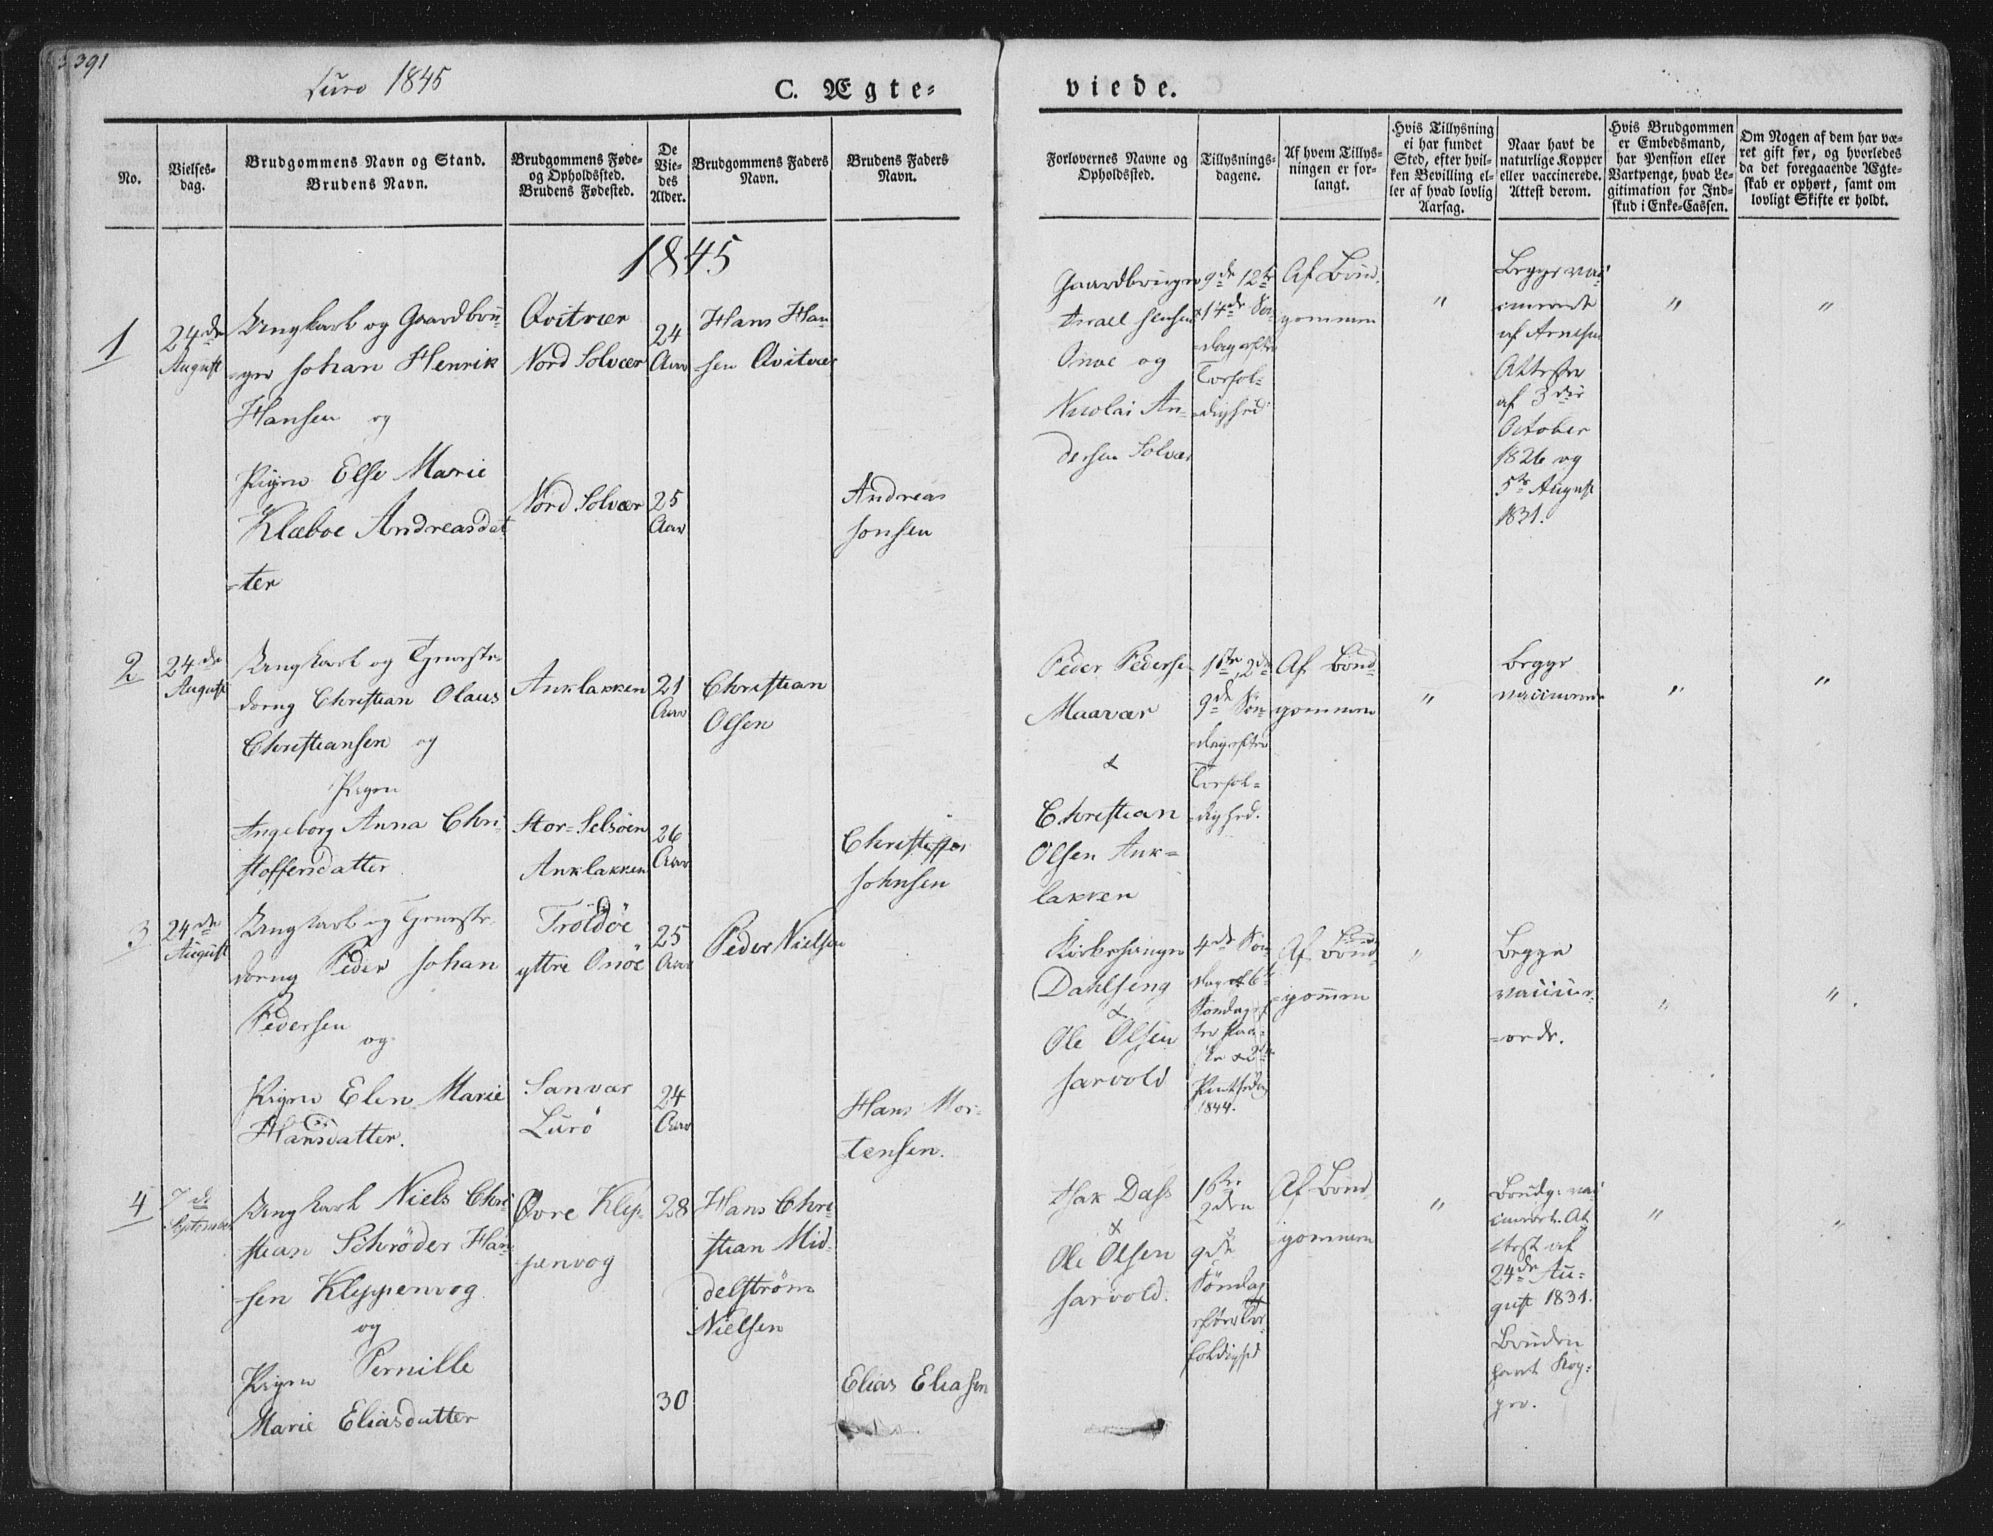 391
Lurø 1845
C. Ægte=
viede.
No.
Vielses-
dag.
Brudgommens Navn og Stand.
Brudens Navn.
Brudgommens Føde-
og Opholdssted.
Brudens Fødested.
De
Vie-
des
Alder.
Brudgommens Faders
Navn.
Brudens Faders
Navn.
Forlovernes Navne og
Opholdssted.
Tillysnings-
dagene.
Af hvem Tillys-
ningen er for-
langt.
Hvis Tillysning
ei har fundet
Sted, efter hvil-
ken Bevilling el-
ler af hvad lovlig
Aarsag.
Naar havt de
naturlige Kopper
eller vaccinerede.
Attest derom.
Hvis Brudgommen
er Embedsmand,
har Pension eller
Vartpenge, hvad Le-
gitimation for Ind-
skud i Enke-Cassen.
Om Nogen af dem har væ-
ret gift før, og hvorledes
da det foregaaende Ægte-
skab er ophørt, samt om
lovligt Skifte er holdt.
1845
1
24de
August
Ungkarl og Gaardbru-
ger Johan Henrik
Hansen og
Pigen Else Marie
Klæboe Andreasdat
=ter
Qvitvær
Nord Solvær
Nord Solvær
24
Aar
25
Aar
Hans Han-
sen Qvitvær
Andreas
Jonsen
Gaardbruger
Israel Jensen
Onøe og
Nicolai An-
dersen Solvær
9de 12te
14de Søn-
dag efter
Trefol-
dighed
Af Brud-
gommen
"
Begge vac-
cinerede
af Arnesen
Attester
af 3die
October
1826 og
5te August
1831.
"
"
2
24de
August
Ungkarl og Tjeneste-
dreng Christian Olaus
Christiansen og
Pigen
Ingeborg Anna Chri-
stoffersdatter
Anklakken
Stor-Selsøen
Anklakken
21
Aar
26
Aar
Christian
Olsen
Christoffer
Johnsen
Peder Pedersen
Maavær
&
Christian
Olsen Ank=
lakken
1ste, 2den
9de Søn-
dag efter
Trefol-
dighed.
Af Brud-
gommen
"
Begge
vaccinerede
"
"
3
24de
August
Ungkarl og Tjeneste-
dreng Peder Johan
Pedersen
og
Pigen Elen Marie
Hansdatter.
Troldøe
yttre Onøe
Sanvær
Lurø
25
Aar
24
Aar
Peder Nielsen
Hans Mor-
tensen.
Kirkesanger
Dahlseng
&
Ole Olsen
Jarvold
4de Søn-
dag & 6te
Søndag ef-
ter Paa-
ske & 2den
Pintsedag
1844.
Af Brud-
gommen
"
Begge
vaccine-
rede.
"
"
4
7de
September
Ungkarl Niels Chri-
stian Schrøder Han-
sen Kleppenvog
og
Pigen Pernille
Marie Eliasdatter
Øvre Klep-
penvog
28
30
Hans Chri-
stian Mid-
delstrøm
Nielsen
Elias Eliasen
Isak Dass
&
Ole Olsen
Jarvold.
1ste
2den
9de
Søndag
efter Tre-
foldighed
Af Brud-
gommen
"
Brudg. vac-
cineret. At-
test af
24de Au-
gust 1831.
Bruden
havt Kop-
per.
"
"